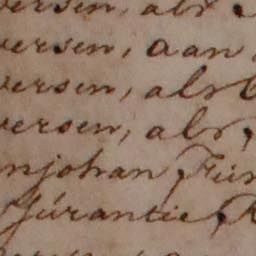 versen, als
versen, aan
versen, als
versen, als,
njohan Fun
Júrantie, R